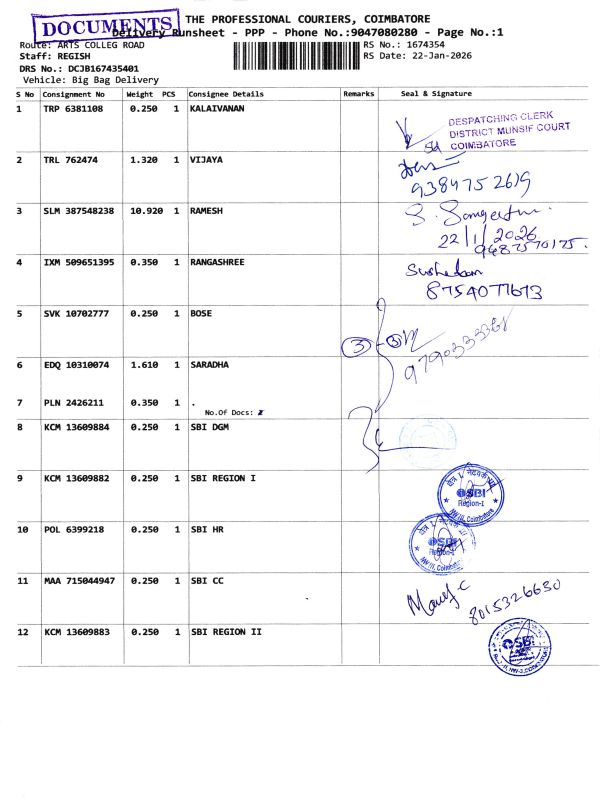 DOCUMENTS
THE PROFESSIONAL COURIERS, COIMBATORE
Delivery Runsheet - PPP - Phone No.:9047080280 - Page No.:1
Route: ARTS COLLEG ROAD
RS No.: 1674354
Staff: REGISH
RS Date: 22-Jan-2026
DRS No.: DCJB167435401
Vehicle: Big Bag Delivery
S No Consignment No Weight PCS Consignee Details Remarks Seal & Signature
1 TRP 6381108 0.250 1 KALAIVANAN
DESPATCHING CLERK
DISTRICT MUNSIF COURT
COIMBATORE
2 TRL 762474 1.320 1 VIJAYA
9384752619
3 SLM 387548238 10.920 1 RAMESH
22/1/2026
9487570175.
4 IXM 509651395 0.350 1 RANGASHREE
8754077673
5 SVK 10702777 0.250 1 BOSE
3 3
6 EDQ 10310074 1.610 1 SARADHA
7 PLN 2426211 0.350 1 .
No.Of Docs:
8 KCM 13609884 0.250 1 SBI DGM
9 KCM 13609882 0.250 1 SBI REGION I
SBI
Region-I
10 POL 6399218 0.250 1 SBI HR
SBI
Region-I
11 MAA 715044947 0.250 1 SBI CC
8015326630
12 KCM 13609883 0.250 1 SBI REGION II
SBI